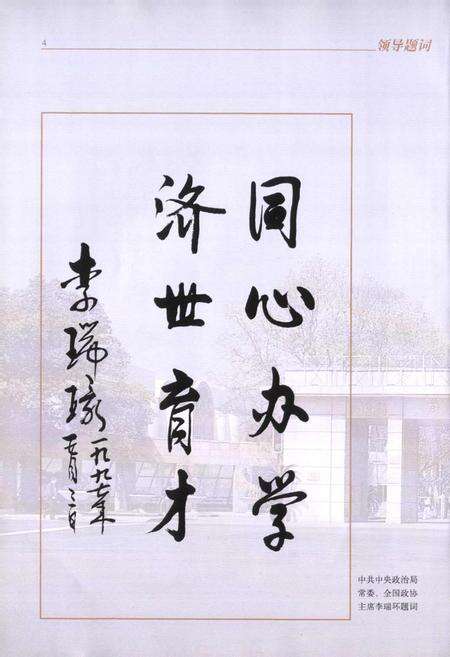 4
领导题词
同心办学
济世育才
李瑞环
一九九七年
中共中央政治局
常委、全国政协
主席李瑞环题词